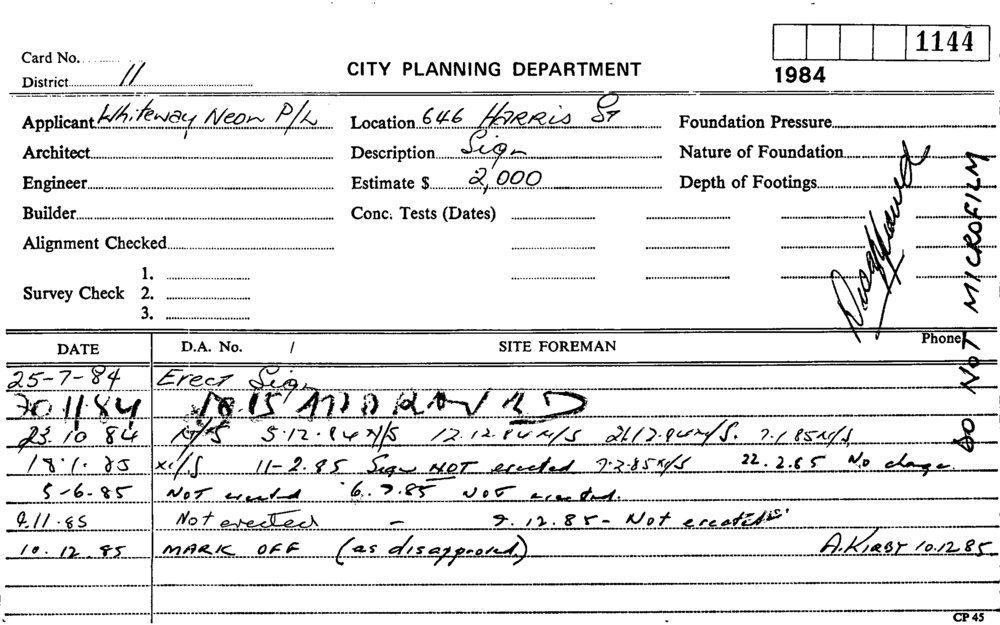 1144
Card No.
CITY PLANNING DEPARTMENT
1984
District 11
Applicant Whiteway Neon P/L Location 646 HARRIS ST Foundation Pressure
Architect Description Sign Nature of Foundation
Engineer Estimate $ 2,000 Depth of Footings
Builder Conc. Tests (Dates)
Alignment Checked
1.
Survey Check 2.
3.
DO NOT MICROFILM
DATE D.A. No. / SITE FOREMAN Phone
25-7-84 Erect Sign
30.11.84
23.10.84 N/S 5.12.84 N/S 12.12.84 N/S 21.12.84 N/S. 7.1.85 N/S
18.1.85 N/S 11-2.85 Sign NOT erected 7.2.85 N/S 22.2.85 No change.
5-6-85 NOT erected 6.7.85 NOT erected.
9.11.85 Not erected - 9.12.85 - Not erected
10.12.85 MARK OFF (as disapproved) A. KIRBY 10.12.85
CP 45